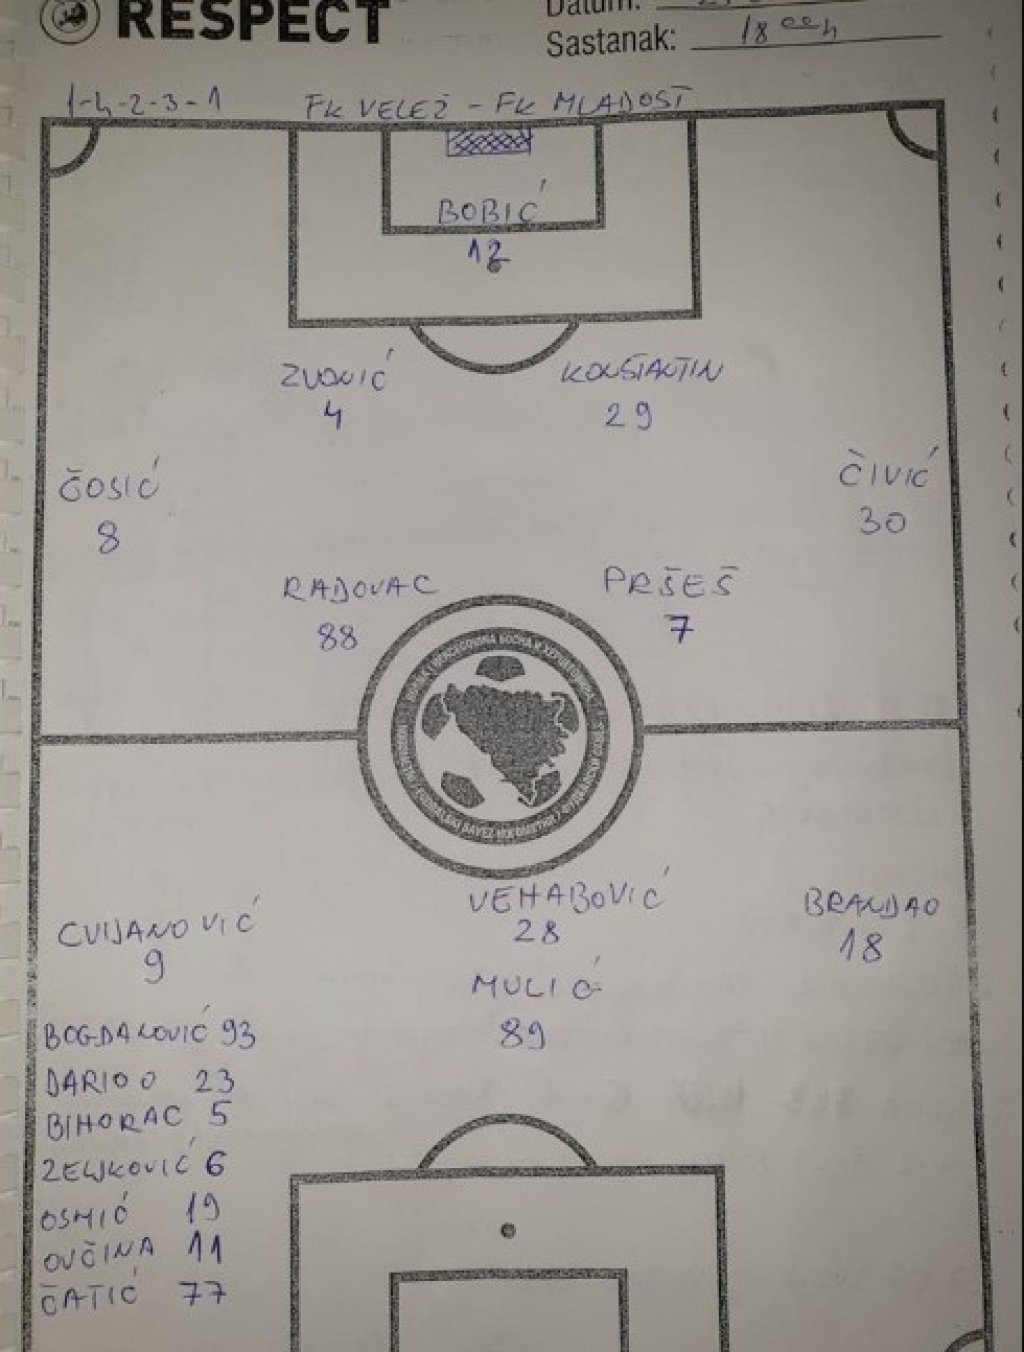 RESPECT
Datum:
Sastanak: 18 00h
1-4-2-3-1 FK VELEŽ - FK MLADOST
BOBIĆ
12
ZVONIĆ KONSTANTIN
4 29
ĆOSIĆ ČIVIĆ
8 30
RADOVAC PRŠEŠ
88 7
CVIJANOVIĆ VEHABOVIĆ BRANDAO
9 28 18
MULIĆ
89
BOGDANOVIĆ 93
DARIO O 23
BIHORAC 5
ZELJKOVIĆ 6
OSMIĆ 19
OVČINA 11
ČATIĆ 77